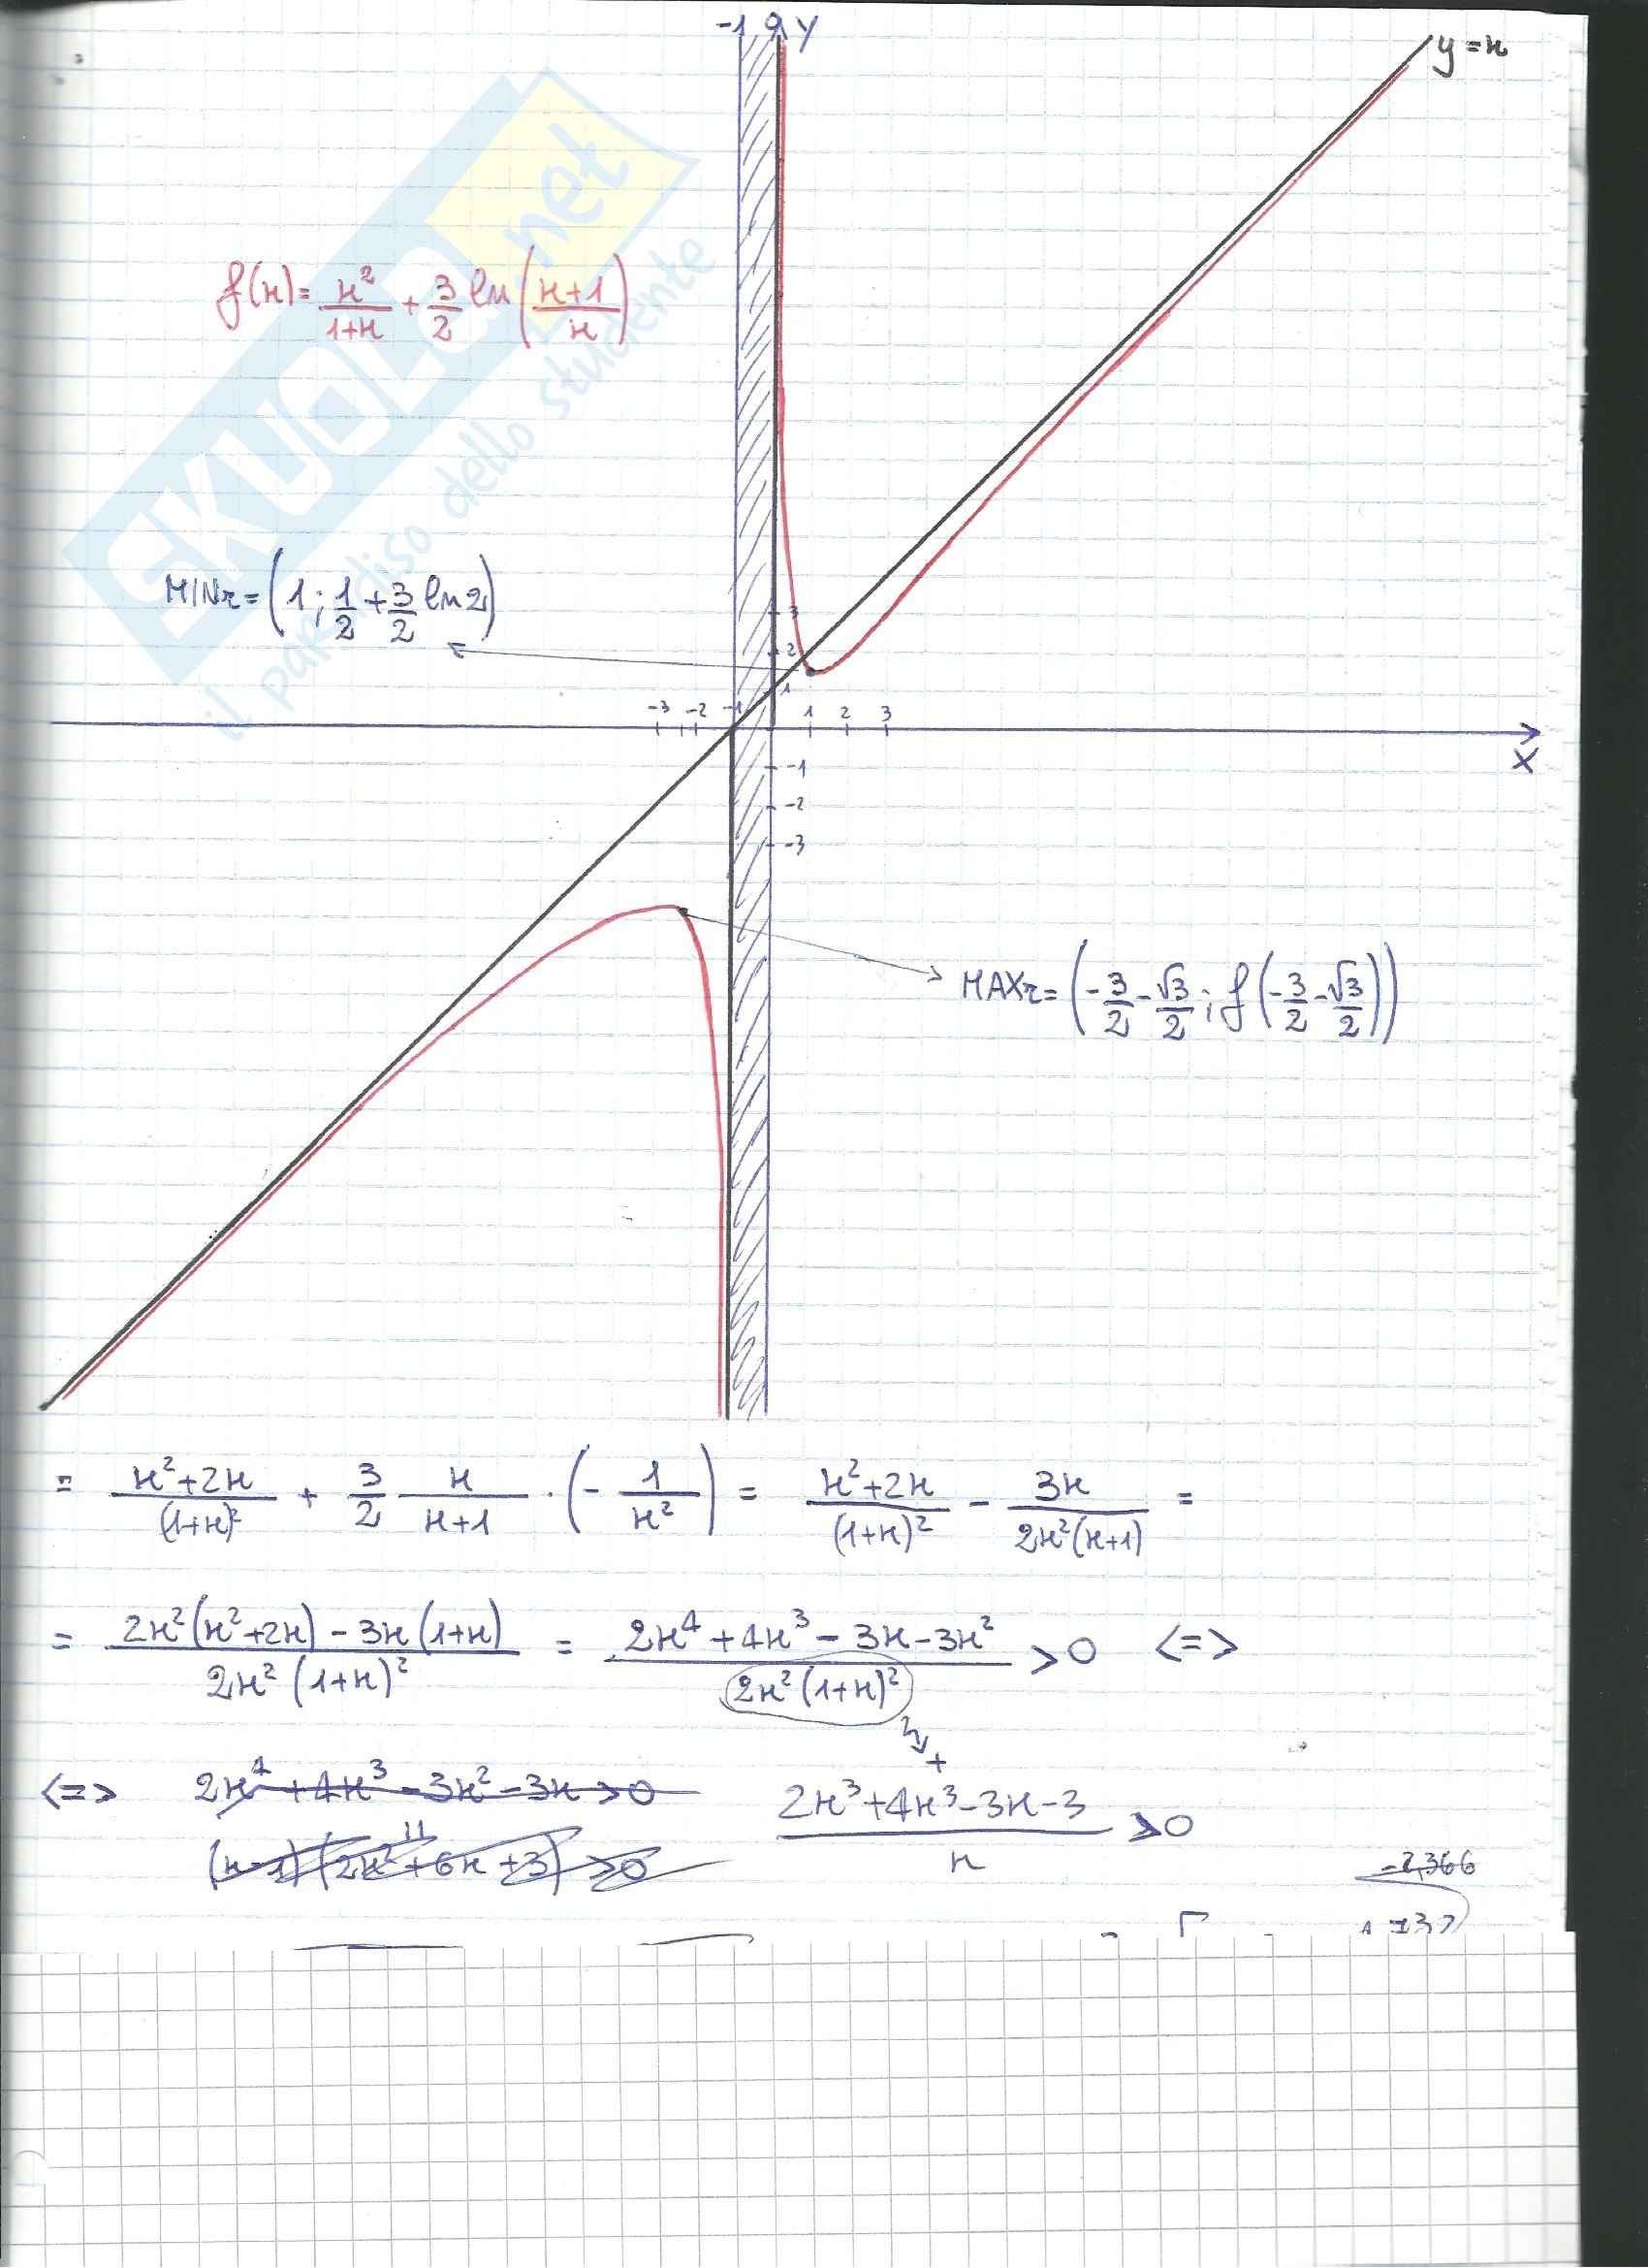 -1 0 y
y=x
SKUOLA.net
il paradiso dello studente
f(x)= x²/(1+x) + 3/2 ln((x+1)/x)
MINr=(1; 1/2+3/2 ln2)
3
2
1
-3 -2 -1 1 2 3
x
-1
-2
-3
MAXr=(-3/2-√3/2; f(-3/2-√3/2))
= (x²+2x)/(1+x)² + 3/2 x/(x+1) · (-1/x²) = (x²+2x)/(1+x)² - 3x/(2x²(x+1)) =
= (2x²(x²+2x)-3x(1+x))/(2x²(1+x)²) = (2x⁴+4x³-3x-3x²)/(2x²(1+x)²) >0 <=>
+
<=> 2x⁴+4x³-3x²-3x>0 (2x³+4x³-3x-3)/x >0
(x-1)(2x²+6x+3)>0
-2,366